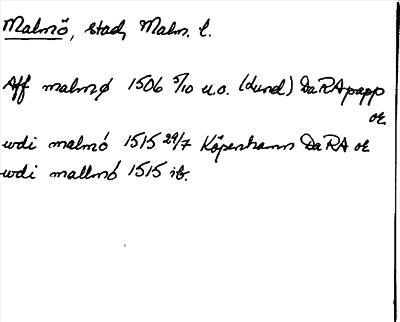 Malmö, stad, Malm. l.
Aff malmø 1506 5/10 u.o. (Lund) DaRApapp
or.
wdi malmó 1515 29/7 Köpenhamn DaRA or
wdi mallmó 1515 ib.